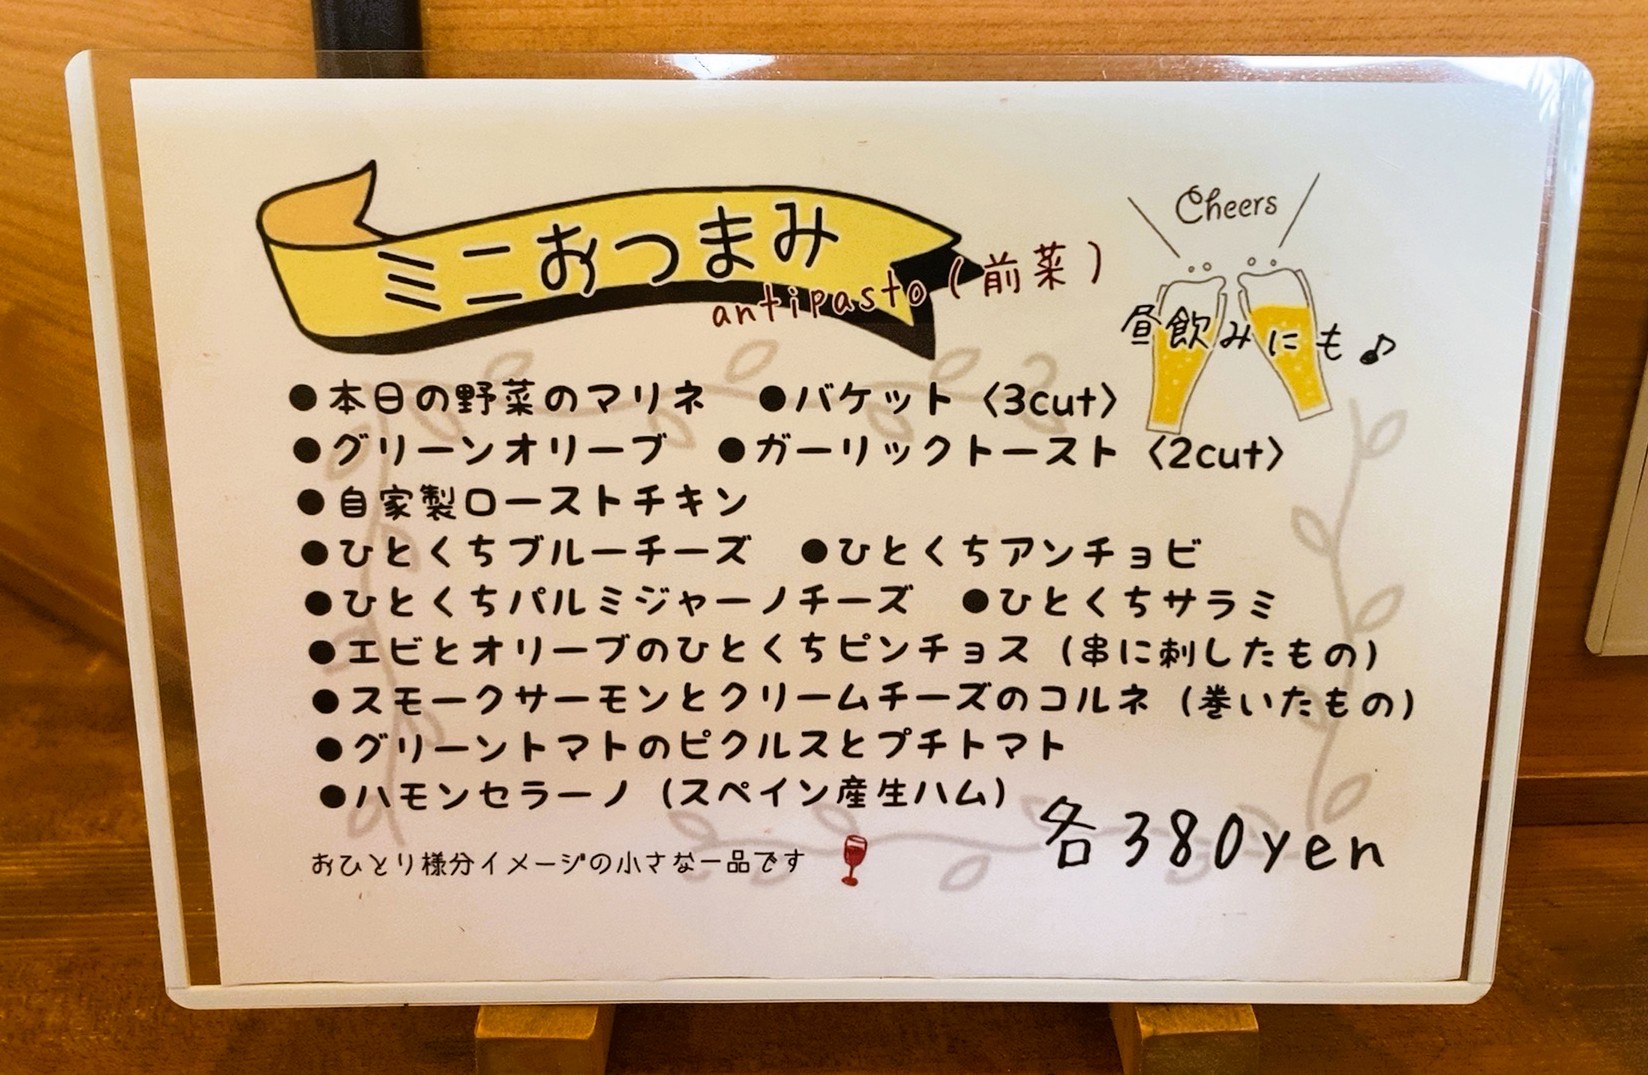 Cheers
ミニおつまみ
antipasto(前菜)
昼飲みにも♪
●本日の野菜のマリネ ●バケット〈3cut〉
●グリーンオリーブ ●ガーリックトースト〈2cut〉
●自家製ローストチキン
●ひとくちブルーチーズ ●ひとくちアンチョビ
●ひとくちパルミジャーノチーズ ●ひとくちサラミ
●エビとオリーブのひとくちピンチョス(串に刺したもの)
●スモークサーモンとクリームチーズのコルネ(巻いたもの)
●グリーントマトのピクルスとプチトマト
●ハモンセラーノ(スペイン産生ハム)
各380yen
おひとり様分イメージの小さな一品です